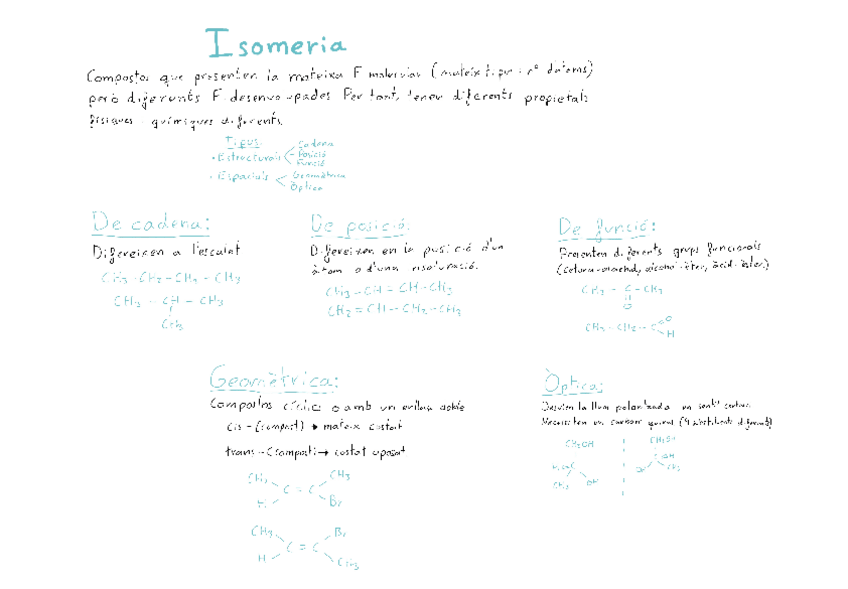 Isomeria
Compostos que presenten la mateixa F molecular (mateix tipus i nº d'àtoms)
però diferents F desenvolupades Per tant, tenen diferents propietats
físiques i químiques diferents.
Tipus:
• Estructurals Cadena
Posició
Funció
• Espacials Geomètrica
Òptica
De cadena:
Difereixen a l'esquelet
CH3 - CH2 - CH2 - CH3
CH3 - CH - CH3
CH3
De posició:
Difereixen en la posició d'un
àtom o d'una insaturació.
CH3 - CH = CH - CH3
CH2 = CH - CH2 - CH3
De funció:
Presenten diferents grups funcionals
(cetona-aldehid, alcohol-èter, àcid-èster)
CH3 - C - CH3
O
CH3 - CH2 - C O
H
Geomètrica:
Compostos cíclics o amb un enllaç doble
cis-(compost) → mateix costat
trans-(compost) → costat oposat
CH3 CH3
C = C
H Br
CH3 Br
C = C
H CH3
Òptica:
Desvien la llum polaritzada en sentit
Necessiten un carboni quiral (4 substituents diferents)
CH2OH CH2OH
C OH
CH3 OH CH3